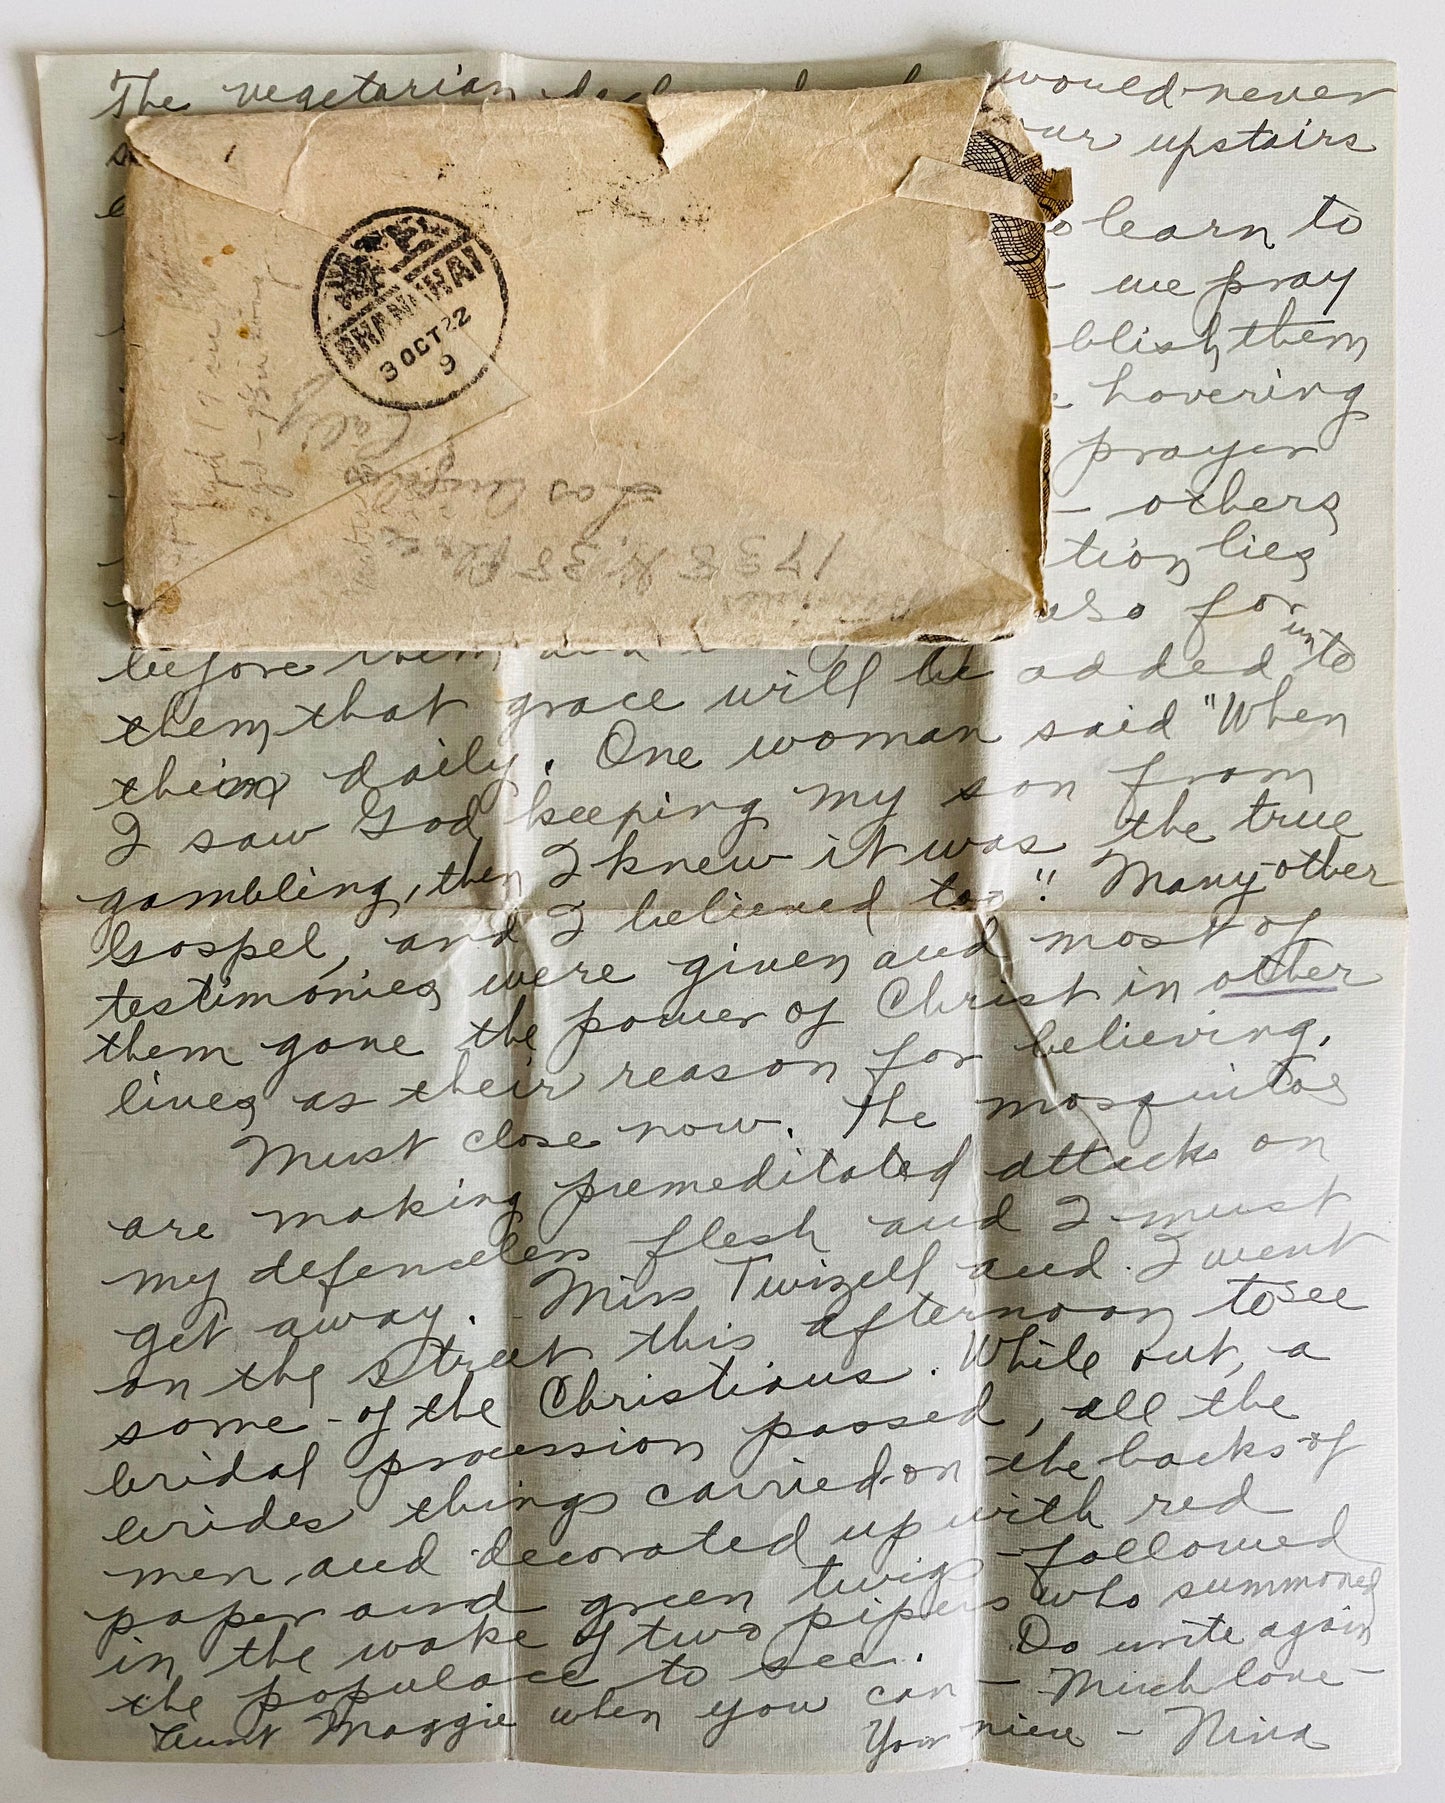 The vegetarian would never
our upstairs
learn to
- we pray
blish them
hovering
prayer
- others
tion lies
also for
before them and
them that grace will be added unto
them daily. One woman said "When
I saw God keeping my son from
gambling, then I knew it was the true
Gospel, and I believed too". Many other
testimonies were given and most of
them gave the power of Christ in other
lives as their reason for believing.
Must close now. The mosquitos
are making premeditated attack on
my defenceless flesh and I must
get away. Miss Twizell and I went
on the Street this afternoon to see
some of the Christians. While out, a
bridal procession passed, all the
brides things carried on the backs of
men and decorated up with red
paper and green twigs followed
in the wake of two pipers who summoned
the populace to see. Do write again
Aunt Maggie when you can - Much love -
Your niece - Nina
SHANGHAI
3 OCT 22
9
Calif
Los Angeles
1738 W. 38 Place